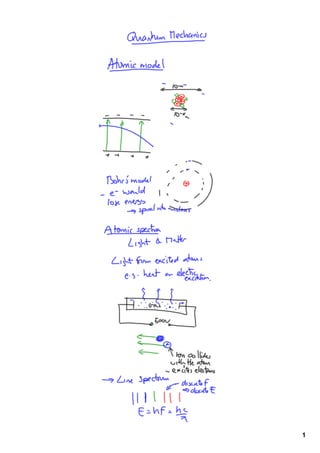 Quantum Mechanics
Atomic model
- - - -
+ + + +
Bohr's model
- e⁻ would
lose energy
→ spiral into
Atomic spectra
Light & Matter
Light from excited atoms
e.g. heat or electric excitation.
500V
ion collides
with the atom
- excites electrons
→ Line Spectrum
discrete f
⇒ discrete E
E = hf = hc/λ
1